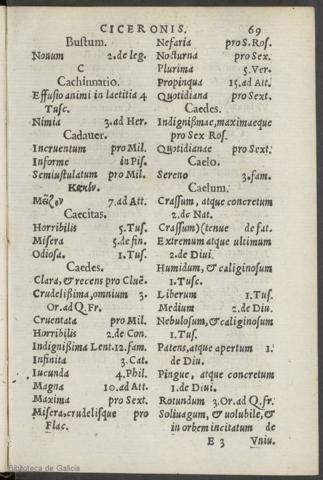 CICERONIS. 69
Bustum.
Nonum 2.de leg.
C
Cachinnatio.
Effusio animi in laetitia 4
Tusc.
Nimia 3.ad Her.
Cadauer.
Incruentum pro Mil.
Informe in Pis.
Semiustulatum pro Mil.
7.ad Att.
Caecitas.
Horribilis 5.Tus.
Misera 5.de fin.
Odiosa. 1.Tus.
Caedes.
Clara, & recens pro Cluē.
Crudelißima,omnium 3.
Or.ad Q.Fr.
Cruentata pro Mil.
Horribilis 2.de Con.
Indignißima Lent.12.fam.
Infinita 3.Cat.
Iucunda 4.Phil.
Magna 10.ad Att.
Maxima pro Sext.
Misera,crudelisque pro
Flac.
Nefaria pro S.Ros.
Nocturna pro Sex.
Plurima 5.Ver.
Propinqua 15.ad Att.
Quotidiana pro Sext.
Caedes.
Indignißmae,maximaeque
pro Sex Ros.
Quotidianae pro Sext.
Caelo.
Sereno 3.fam.
Caelum.
Crassum, atque concretum
2.de Nat.
Crassum)(tenue de fat.
Extremum atque ultimum
2.de Diui.
Humidum, & caliginosum
1.Tusc.
Liberum 1.Tus.
Medium 2.de Diu.
Nebulosum,& caliginosum
1.Tus.
Patens,atque apertum 1.
de Diu.
Pingue, atque concretum
1.de Diui.
Rotundum 3.Or.ad Q.fr.
Soliuagum, & uolubile,&
in orbem incitatum de
E 3 Vniu.
Biblioteca de Galicia